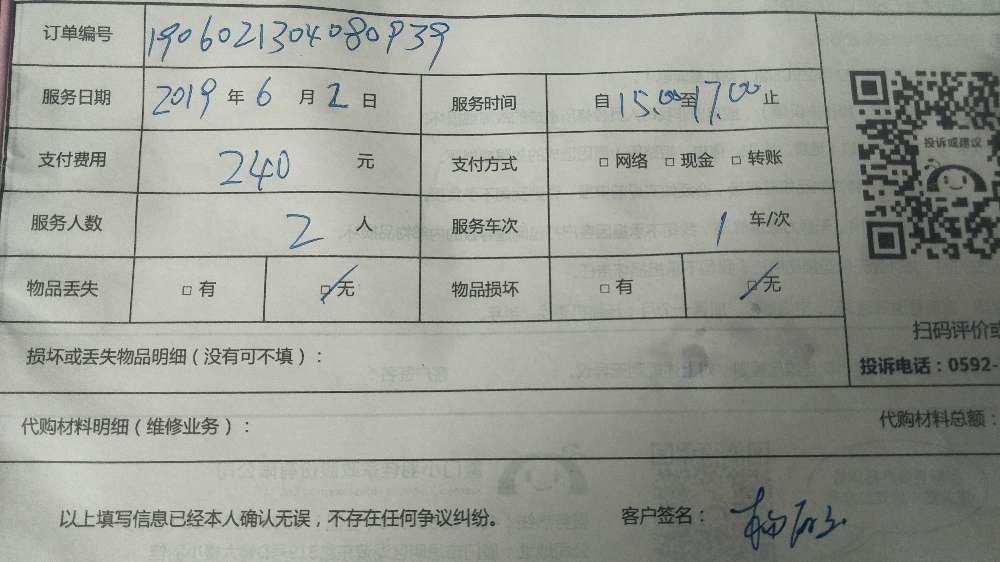 订单编号 1906021304080939
服务日期 2019 年 6 月 2 日 服务时间 自 15.00 至 17.00 止
支付费用 240 元 支付方式 □ 网络 □ 现金 □ 转账
投诉或建议
服务人数 2 人 服务车次 1 车/次
物品丢失 □ 有 □ 无 物品损坏 □ 有 □ 无
扫码评价或
损坏或丢失物品明细（没有可不填）：
投诉电话：0592-
代购材料明细（维修业务）： 代购材料总额：
以上填写信息已经本人确认无误，不存在任何争议纠纷。 客户签名：